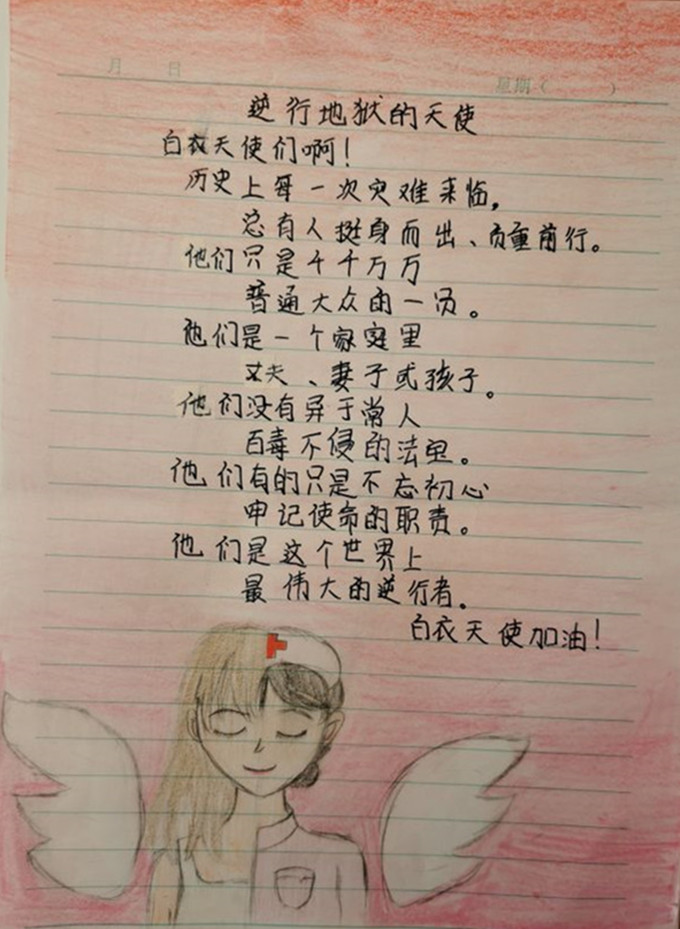 月 日
星期( )
逆行地狱的天使
白衣天使们啊!
历史上每一次灾难来临,
总有人挺身而出、负重前行。
他们只是千千万万
普通大众的一员。
他们是一个家庭里
丈夫、妻子或孩子。
他们没有异于常人
百毒不侵的法宝。
他们有的只是不忘初心
申记使命的职责。
他们是这个世界上
最伟大的逆行者。
白衣天使加油!